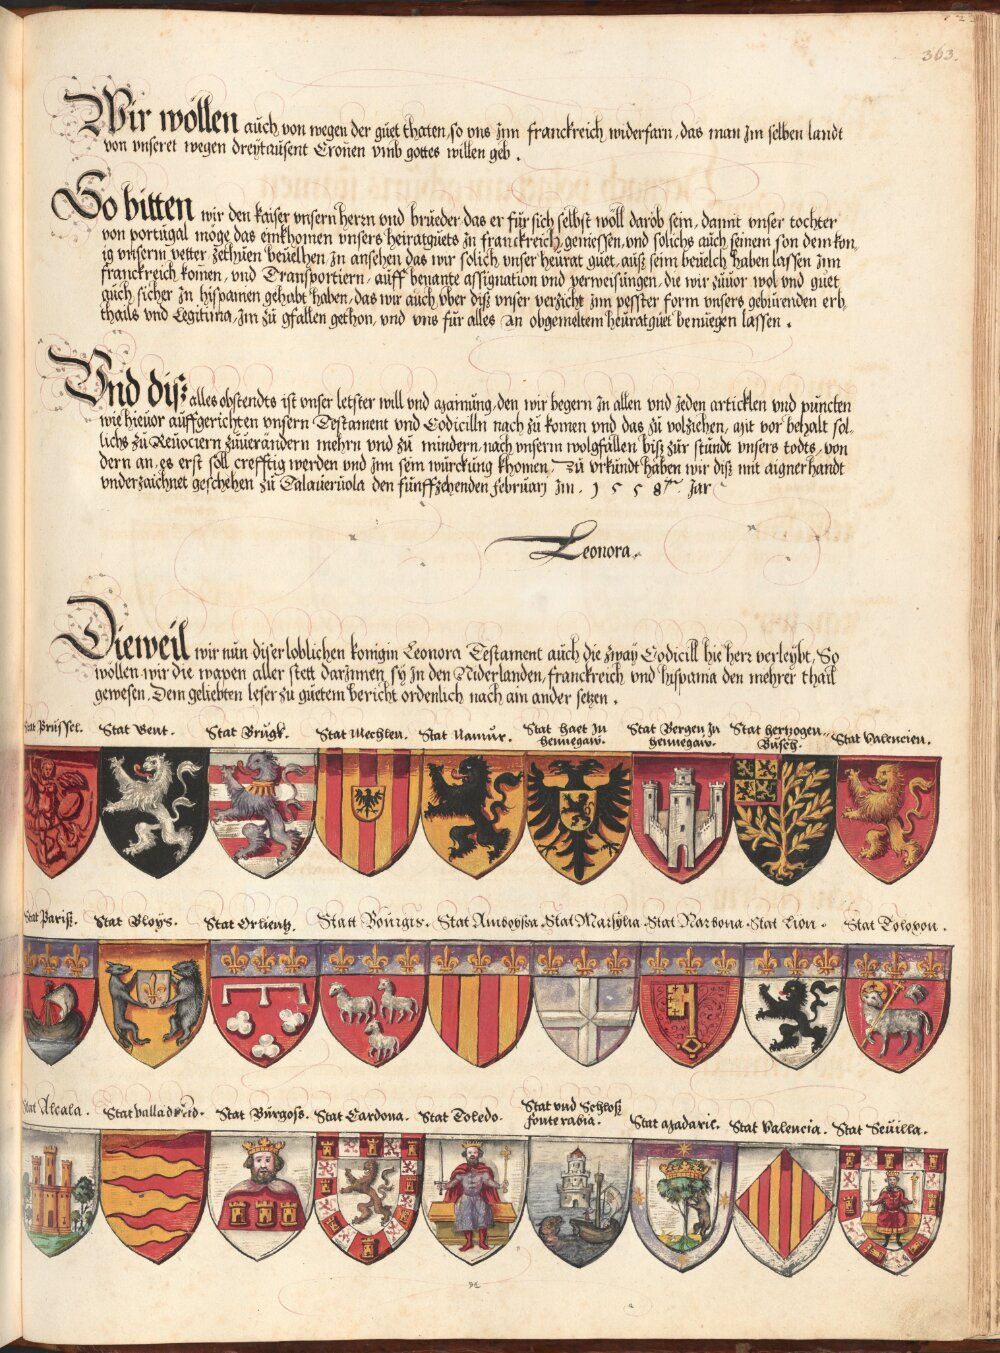 363.
Wir wöllen auch von wegen der guet thaten, so vns Inn franckreich widerfarn, das man Im selben landt
von vnseret wegen dreytausent Cronen vmb gottes willen geb.
So bitten wir den kaiser vnsern herrn vnd brueder das er für sich selbst wöll darob sein, damit vnser tochter
von portugal möge das einkhomen vnsers heiratguets zu franckreich geniessen, vnd solichs auch seinem son dem kön
ig vnserm vetter zethuen beuelhen, In ansehen das wir solich vnser heurat guet, auss seim beuelch haben lassen Inn
franckreich komen, vnd Transportiern, auff benante assignation vnd verweisungen, die wir zuuor wol vnd guet
auch sicher In hispanien gehabt haben, das wir auch vber diss vnser verzicht Inn pesster form vnsers geburenden erb
thails vnd Legitima, Im zu gfallen gethon, vnd vns für alles an obgemeltem heuratguet benuegen lassen.
Vnd diss alles obstendts ist vnser letster will vnd mainung, den wir begern In allen vnd Jeden articklen vnd puncten
wie hieuor auffgerichten vnsern Testament vnd Codicilln nach zu komen vnd das zu volziehen, mit vor behalt sol-
lichs zu Reuociern zuuerändern mehrn vnd zu mindern, nach vnserm wolgfallen biss zur stundt vnsers todts, von
dern an, es erst soll crefftig werden vnd Inn sein würckung khomen. Zu vrkundt haben wir diss mit aigner handt
vnderzaichnet geschehen zu Talaueruola den funffzehenden februarj Im . 1558 Jar
Leonora.
Dieweil wir nun diser loblichen konigin Leonora Testament auch die zway Codicill hie herr verleybt, So
wöllen wir die wapen aller stett darInnen sy In den Niderlanden, franckreich vnd hispania den mehrer thail
gewesen, Dem geliebten leser zu guetem bericht ordenlich nach ain ander setzen.
Stat Prüssel. Stat Gent. Stat Brügk. Stat Mechlen. Stat Namur. Stat haet In hennegaw. Stat Bergen In hennegaw. Stat hertzogen Busch. Stat Valencien.
Stat Pariss. Stat Bloys. Stat Orlientz. Statt Bourgis. Stat Amboyssa. Stat Marsylia. Stat Narbona. Stat Lion. Stat Toloxon.
Stat Alcala. Stat valladolid. Stat Burgoss. Stat Cardona. Stat Toledo. Stat vnd Schloss fonterabia. Stat madaric. Stat Valencia. Stat Seuilla.